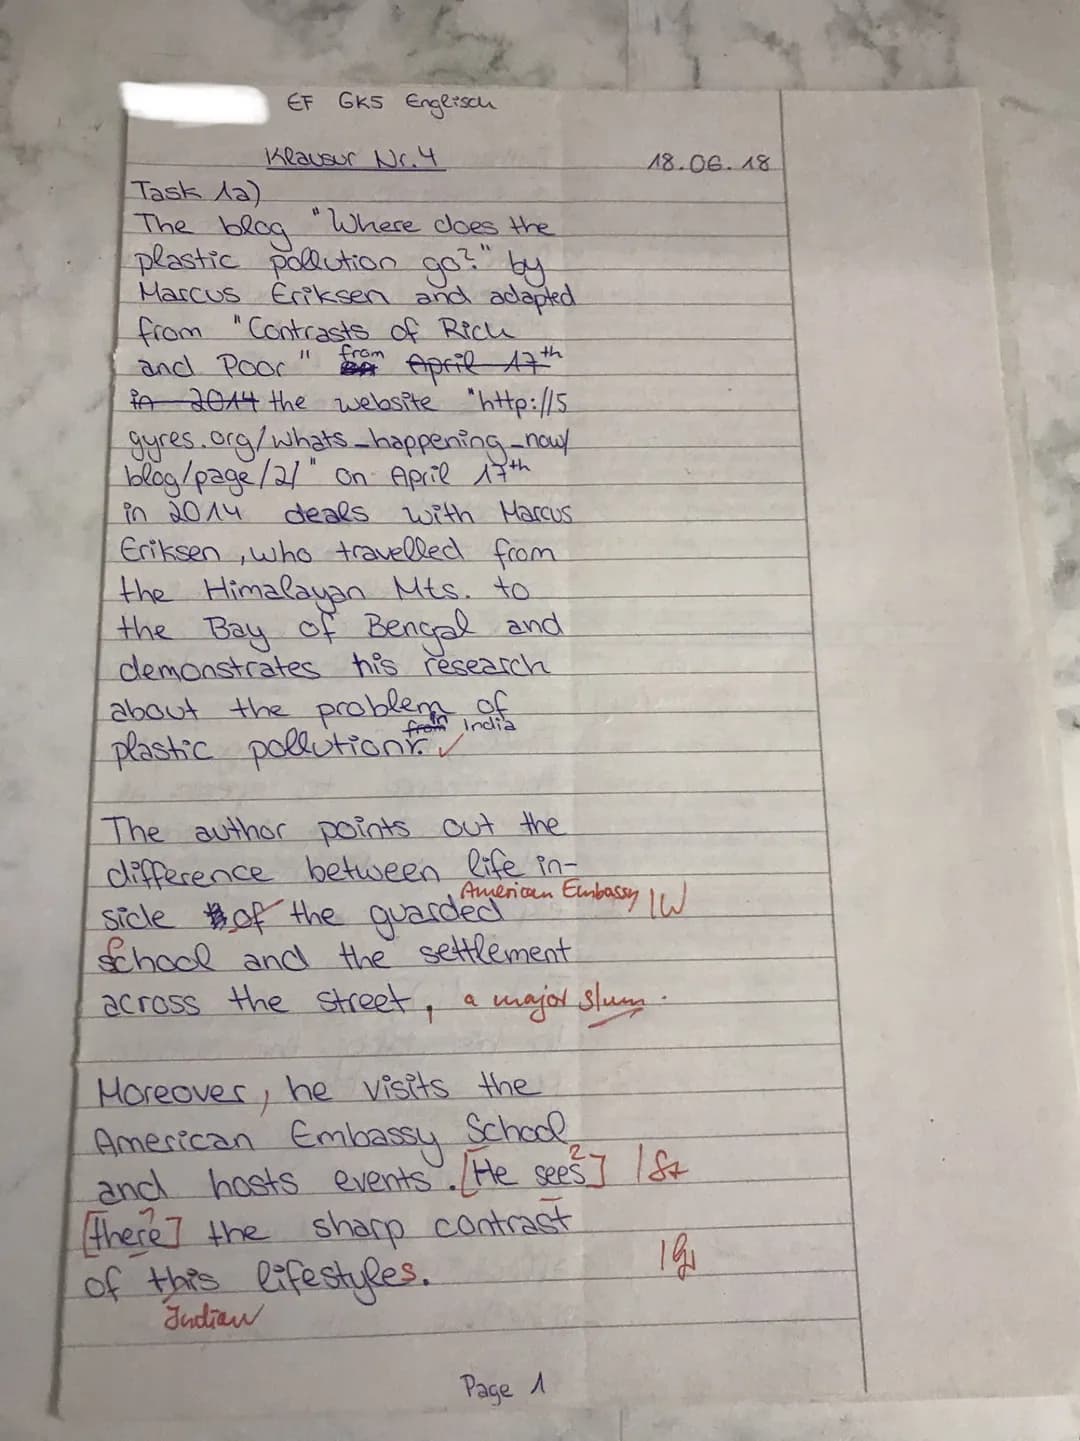 EF GK5 Englisch
Klausur Nr. 4 18.06.18
Task 1a)
The blog "Where does the
plastic pollution go?" by
Marcus Eriksen and adapted
from "Contrasts of Rich
and Poor" from April 17th
in 2014 the website "http://5
gyres.org/whats_happening_now/
blog/page/2/" on April 17th
in 2014 deals with Marcus
Eriksen, who travelled from
the Himalayan Mts. to
the Bay of Bengal and
demonstrates his research
about the problem of
from in India
plastic pollution. ✓
The author points out the
difference between life in-
American Embassy |W
side of the guarded
School and the settlement
across the street, a major slum.
Moreover, he visits the
American Embassy School
and hosts events. [He sees²] |St
[there²] the sharp contrast
of this lifestyles. |Gr
Indian
Page 1